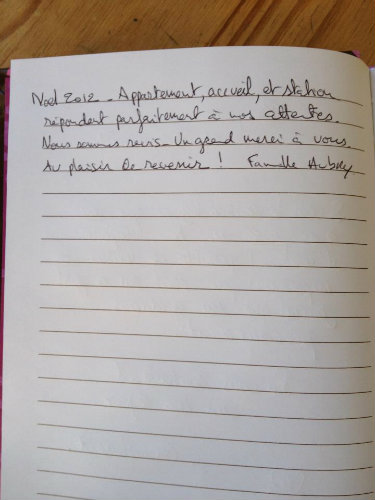 Noël 2012 - Appartement, accueil, et station
répondent parfaitement à nos attentes.
Nous sommes ravis - Un grand merci à vous.
Au plaisir de revenir ! Famille Aubry